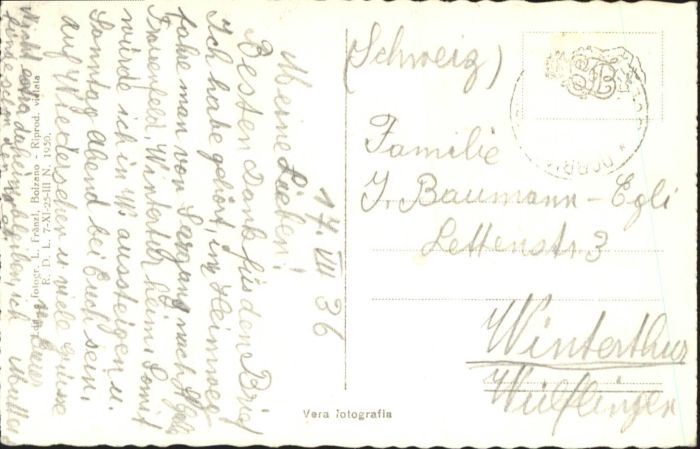 17. VIII 36
Meine Lieben!
Besten Dank für den Brief
Ich habe gehört, im Heimweg
fahe man von Sargans nach
Frauenfeld, Winterthur heim. Somit
würde ich in W. aussteigen u.
Sonntag Abend bei Euch sein.
auf Wiedersehen u. viele Grüsse
Eure
Mutter
Nicht extra daheim bleiben, ich
(Schweiz)
Familie
J. Baumann-Egli
Lettenstr. 3
Winterthur
Wülflingen
Vera fotografia
fotogr. L. Fränzl, Bolzano - Riprod. vietata
R. D. L. 7-XI-25-III N. 1950.